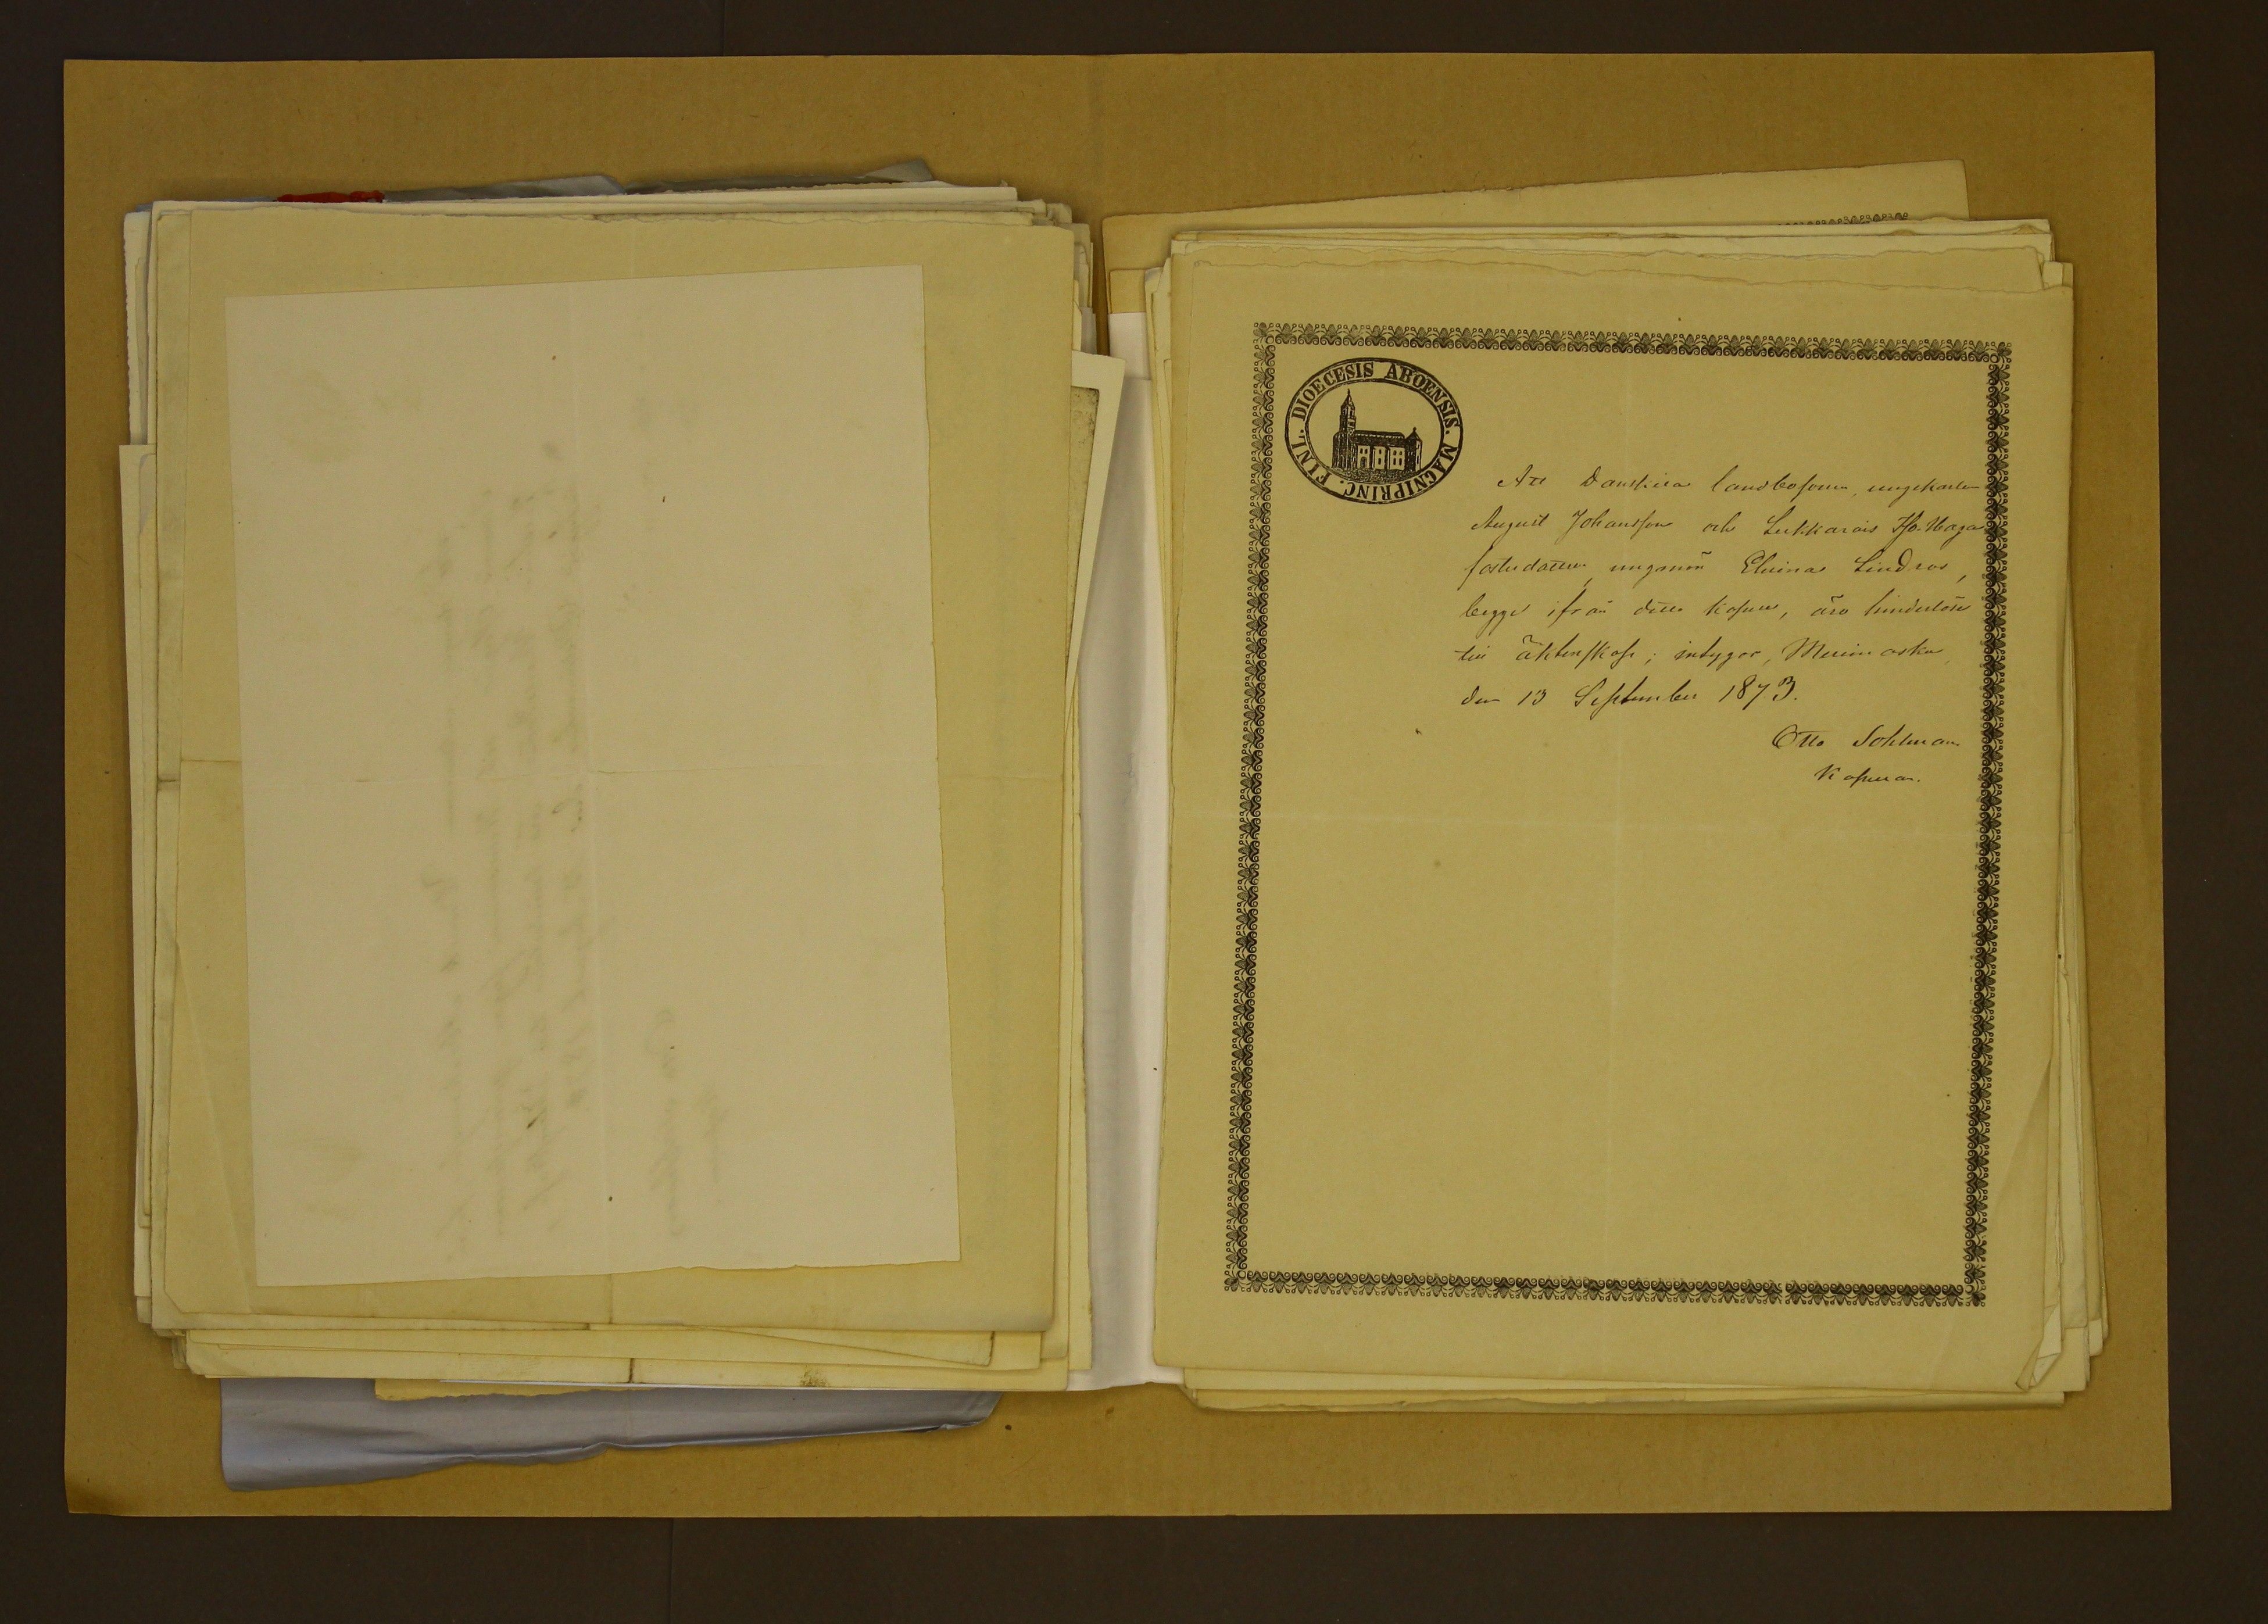 DIOECESIS ABOENSIS. MAGNIPRINC. FINL.
Att Danskila landbosonen, ungkarlen
August Johansson och Lukkarais
fosterdotter, ungmön Elvina Lindros,
begge ifrån detta kapell, äro hinderlöse
till äktenskap; intygar, Merimasku,
den 13 September 1873.
Otto Sohlman
Kapellan.